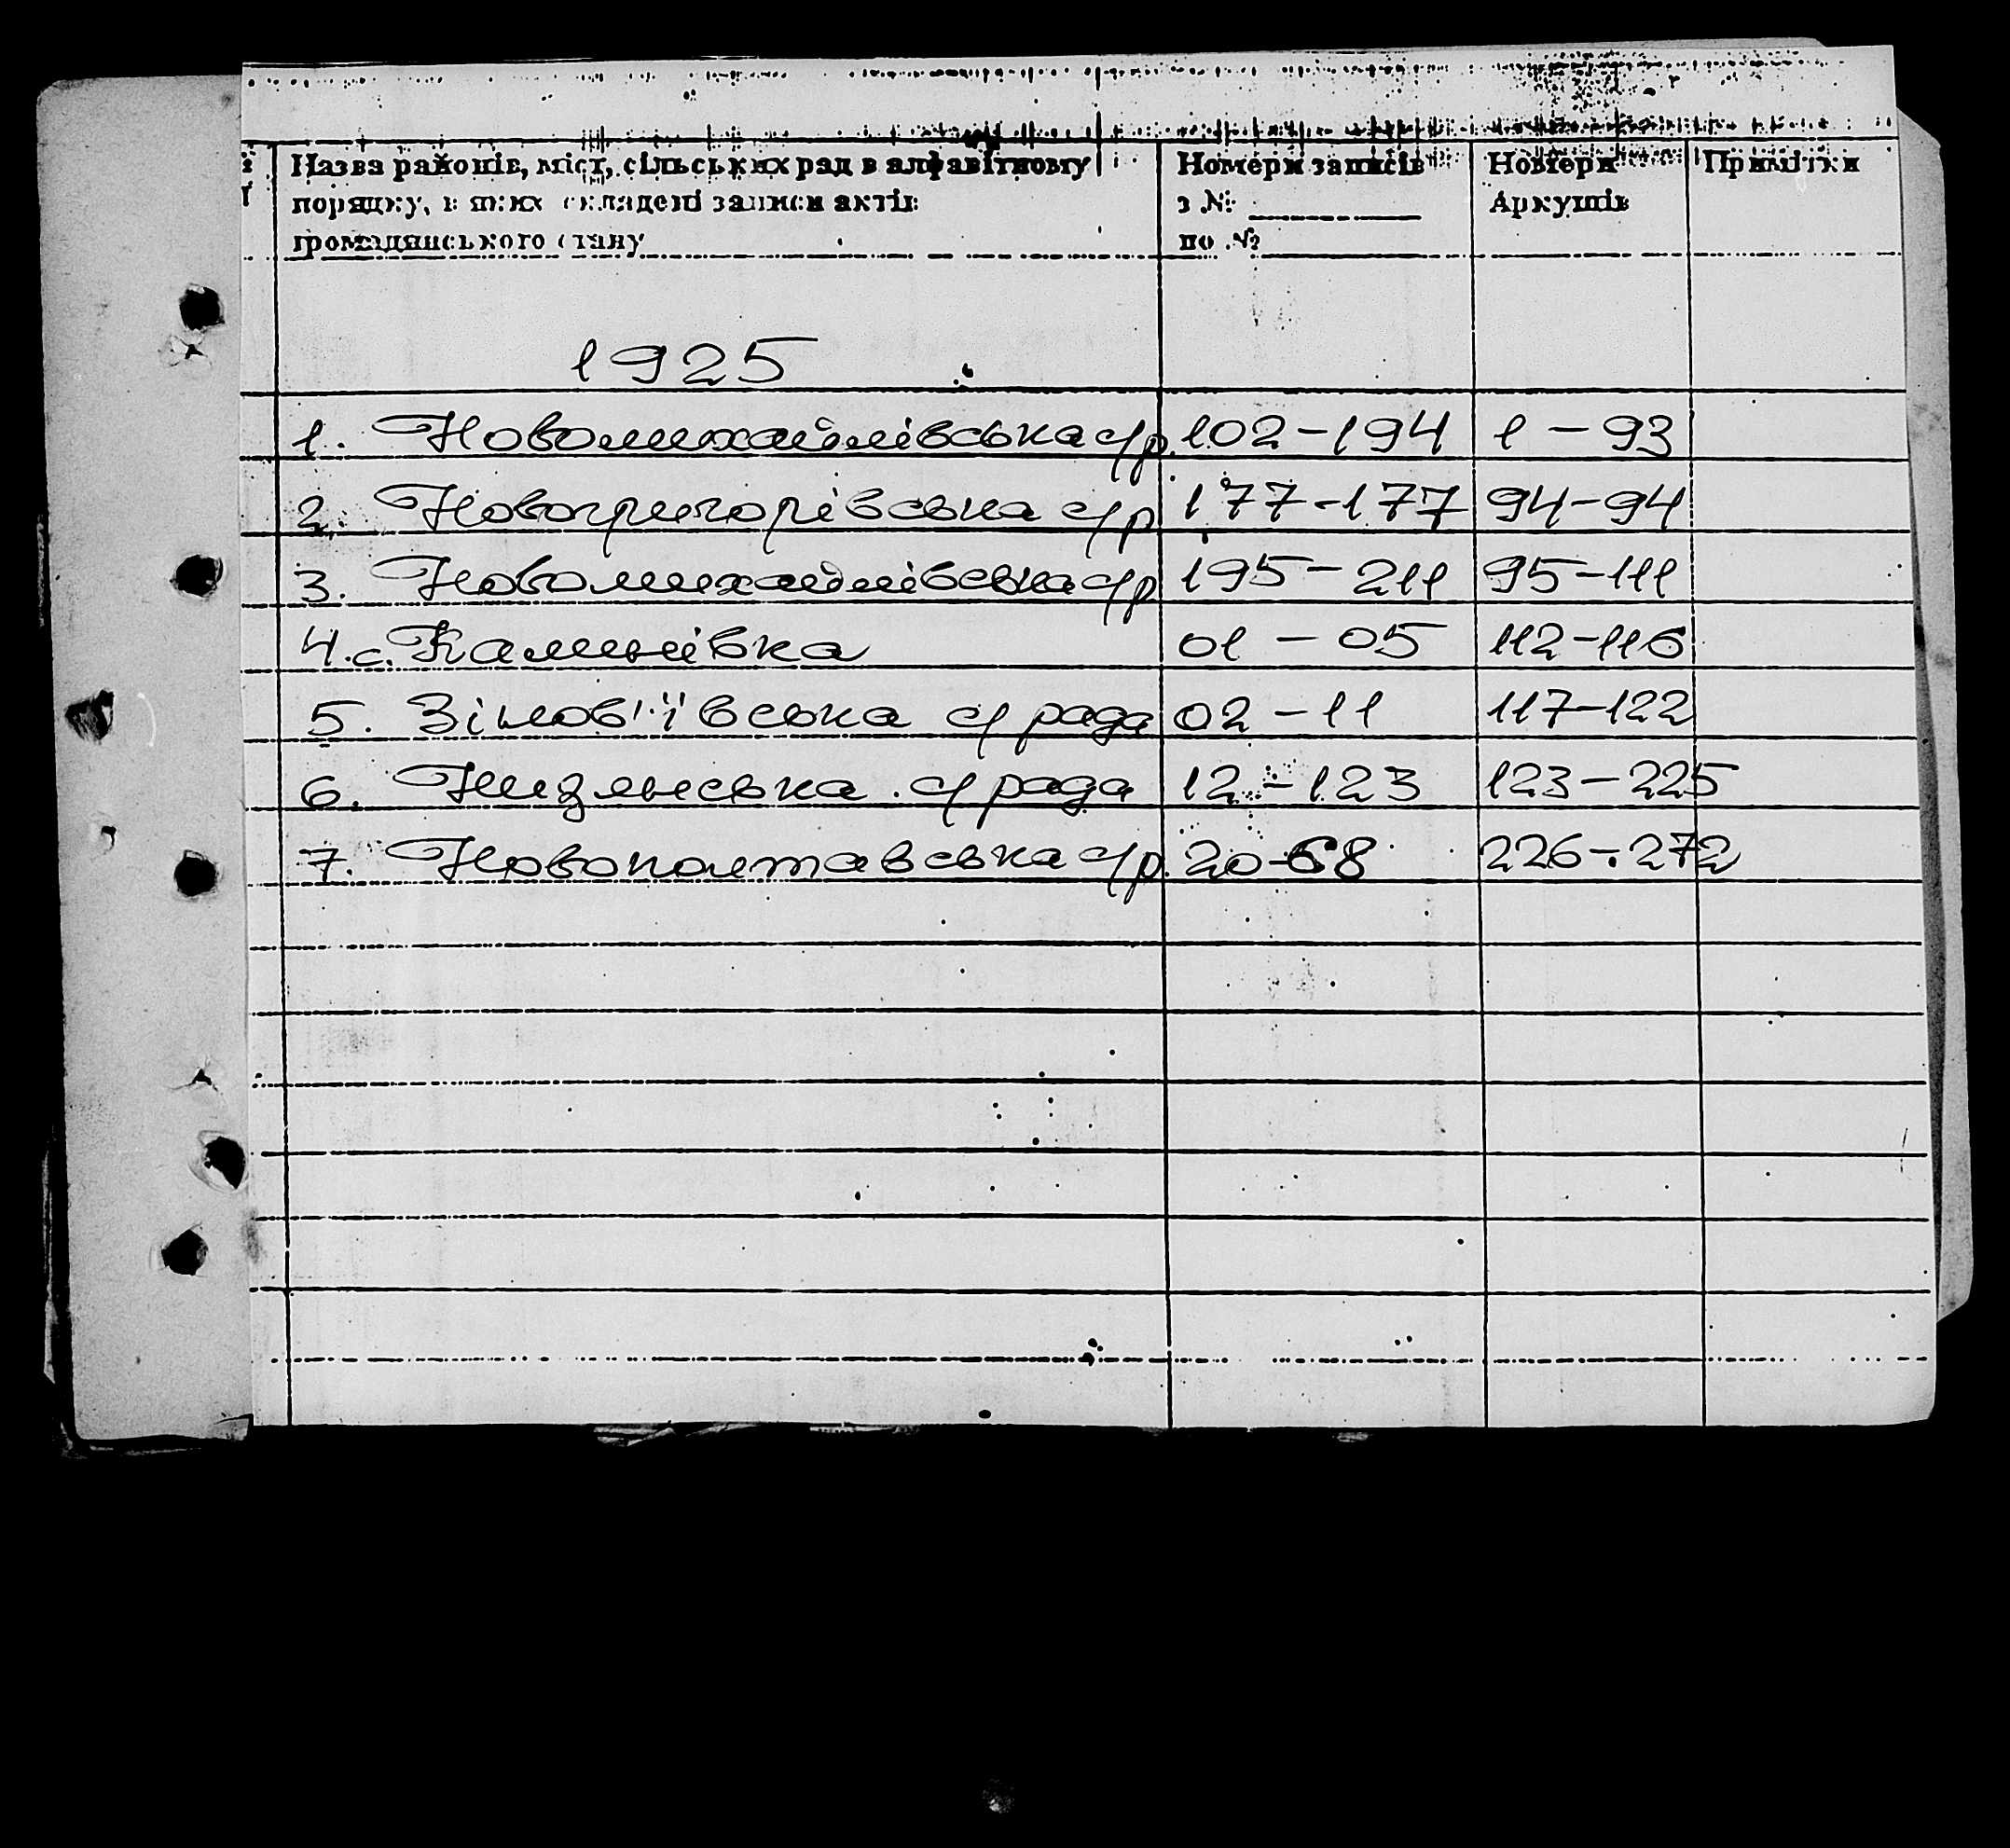 Назва районів, міст, сільських рад в алфавітному Номери записів Номери Примітки
порядку, в яких складені записи актів з № Аркушів
громадянського стану по №
1925
1. Новомихайлівська с/р. 102-194 1-93
2. Новогригорівська с/р 177-177 94-94
3. Новомихайлівська с/р 195-211 95-111
4. с. Кам'янівка 01-05 112-116
5. Зінов'ївська с/рада 02-11 117-122
6. с/рада 12-123 123-225
7. Новополтавська с/р. 20-68 226-272